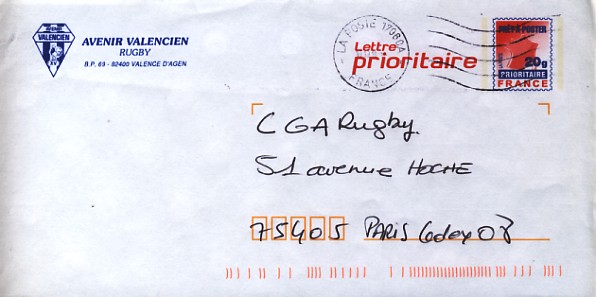 AVENIR
VALENCIEN
AVENIR VALENCIEN
RUGBY
B.P. 69 - 82400 VALENCE D'AGEN
LA POSTE 17980A
FRANCE
Lettre
prioritaire
PRÊT-A-POSTER
20g
PRIORITAIRE
FRANCE
CGA Rugby
51 avenue HOCHE
75405 PARIS Cedex 08